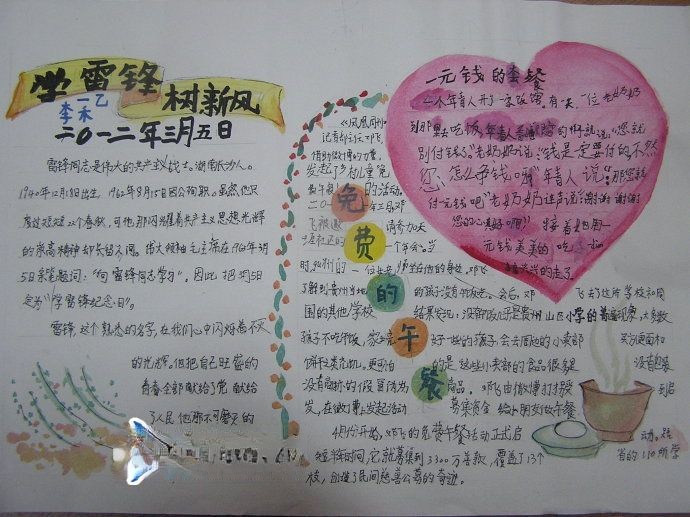 学雷锋
树新风
李一禾乙
二〇一二年三月五日
雷锋同志是伟大的共产主义战士。湖南长沙人。
1940年12月18日出生,1962年8月15日因公殉职。虽然他只
度过短短22个春秋,可他那闪耀着共产主义思想光辉
的崇高精神却长留人间。伟大领袖毛主席在1963年3月
5日亲笔题词:“向雷锋同志学习”。因此把3月5日
定为“学雷锋纪念日”。
雷锋,这个熟悉的名字,在我们心中闪烁着不灭
的光辉。他把自己旺盛的
青春全部献给了党,献给
了人民,他那不可磨灭的
一元钱的套餐
一个年青人开了一家饭馆。有一天,一位老奶奶
到那里去吃饭,年青人
说:“您就
别付钱了。”老奶奶说:“钱是一定要付的,不然
您怎么争钱啊!”年青人说:“那您就
付一元钱吧!”老奶奶连声说:“谢谢谢谢
您的心意好啊!”接着她用一
元钱美美的吃了
的走了。
免费的午餐
《凤凰周刊》
记者部主任邓飞,
借助微博的力量,
发起了乡村儿童免
费午餐的活动。
飞被邀请参加天
涯社区的一个年会。当
时,贵州的一位
邓飞
了解到贵州当地的孩子没有午饭吃。会后,邓飞去了这所学校和周
围的其他学校
结果发现:没午饭吃是贵州山区小学的普遍现象,大多数
孩子不吃午饭,家
好一些的孩子,会去周边的小卖部买方便面和
饼干之类充饥。更可怕的是,这些小卖部的食品很多是没有包装
没有商标的
商品。邓飞由微博打拼
到启
发,在微博上发起活动
募集资金,给小朋友做午餐
4月份开始,邓飞的免费午餐活动正式启动。在
短短半年时间,它就募集到3300万善款,覆盖了13个省的110所学
校,创造了民间慈善公募的奇迹。